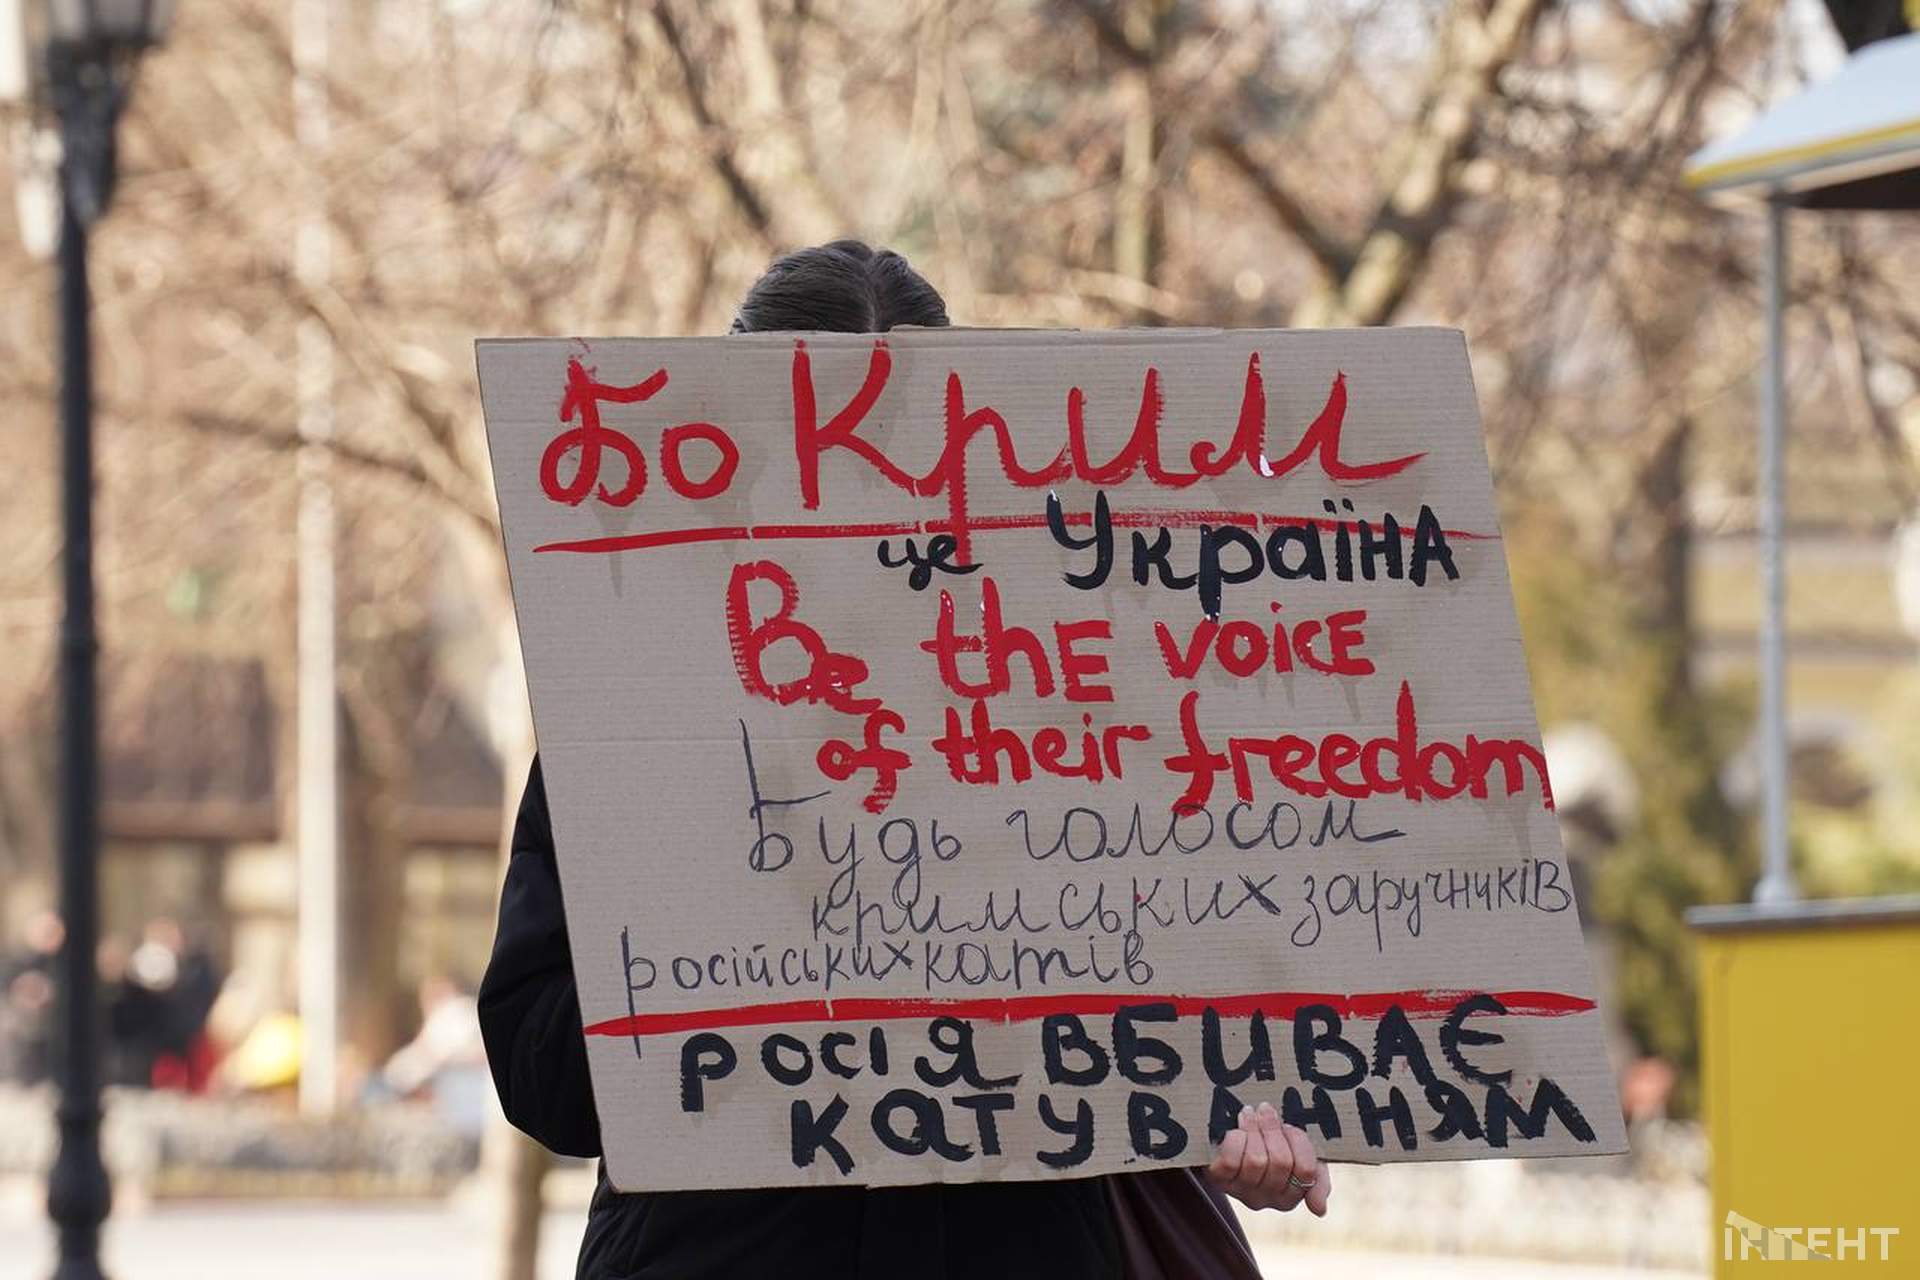 Бо Крим
це УкраїНА
Be thE voicE
of their freedom
Будь голосом
кримських заручників
російських катів
росія ВБИВАЄ
катуВАННЯМ
ІНТЕНТ